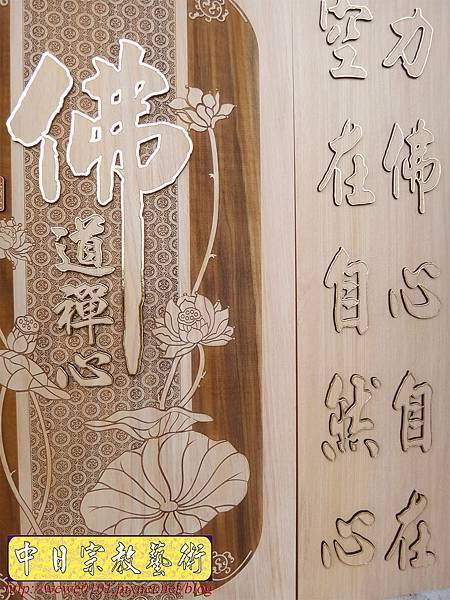 佛
道禪心
力佛心自在
空在自然心
中日宗教藝術
http://wewe0101.pixnet.net/blog